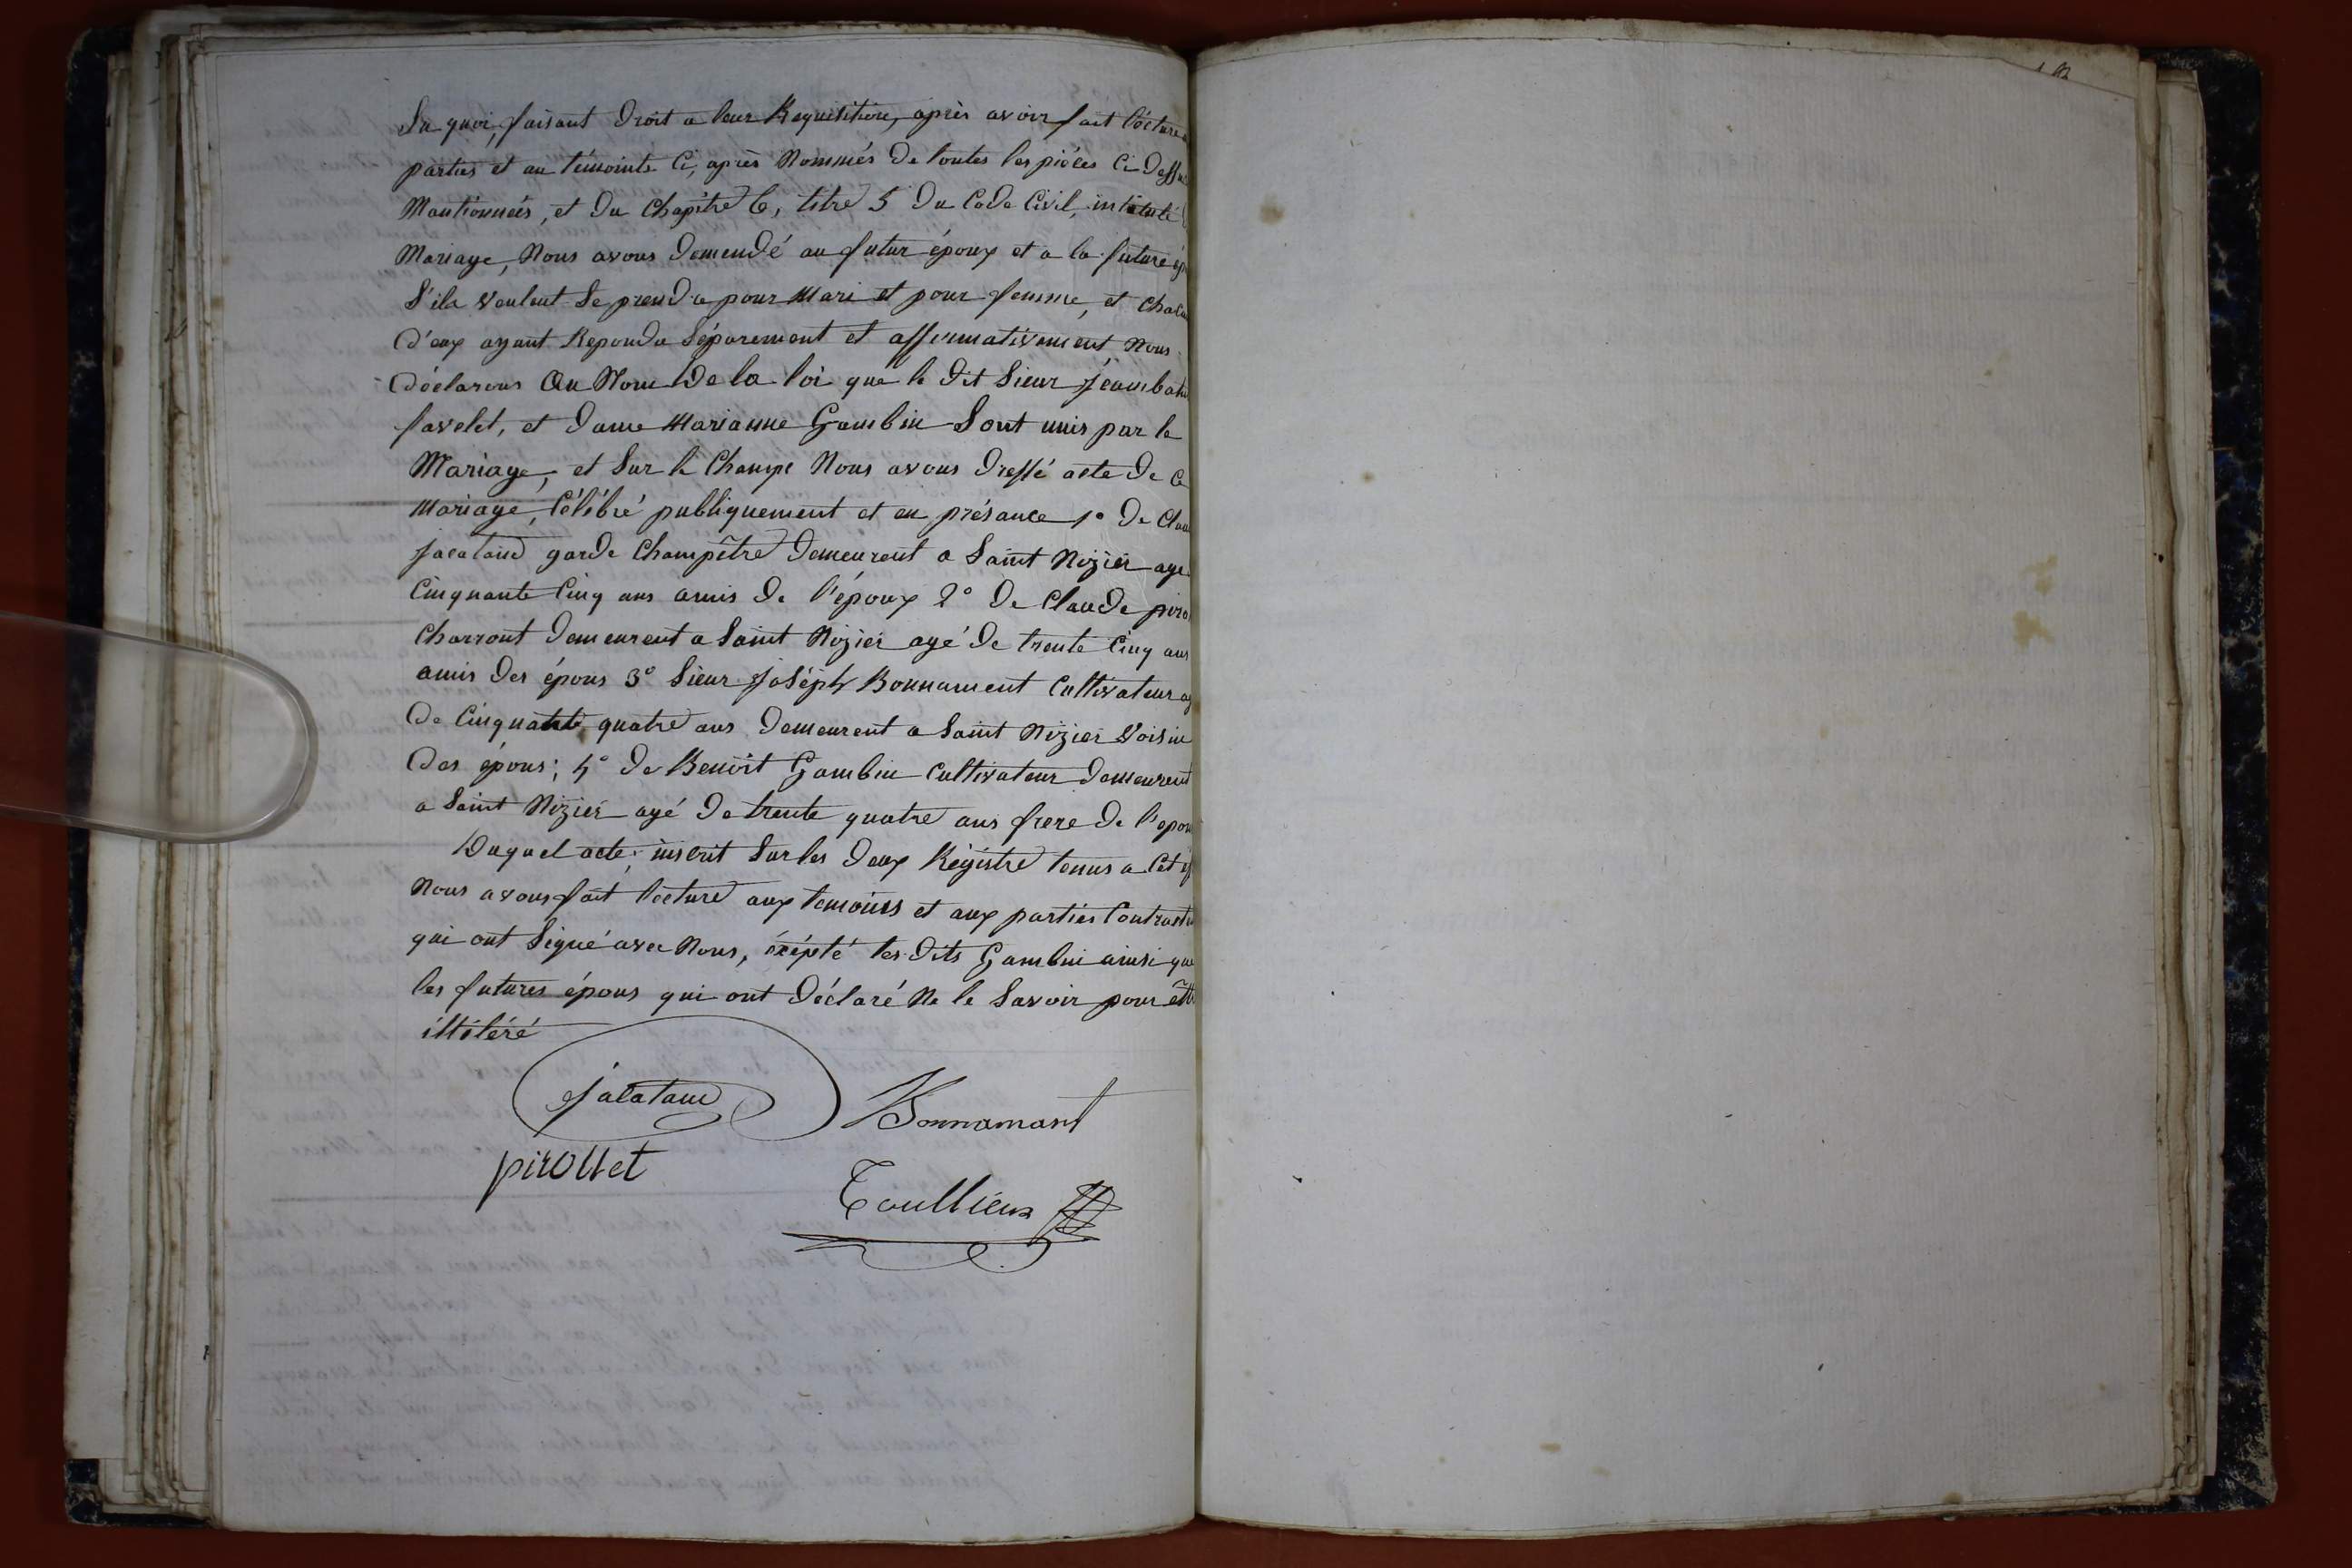 Su quoi, faisant Droit a leur Requisitiore, après avoir fait lécture
parties et au témoints Ci, après Nommés De toutes les piéces Ci Dessu
Mantionneés, et Du Chapitre 6, titre 5 Du Code Civil, intitulé
Mariage, Nous avons Demendé au futur époux et a la future ép
S'ils veulent Se prendre pour Mari et pour femme, et chacu
D'eux ayant Repondu Séparement et affirmativement Nous
Déclarons Au Nom De la loi que le Dit Sieur Jeambat
favelet, et Dame Marianne Gambin Sont unis par le
Mariage, et Sur le Champs Nous avons Dressé acte De Ce
Mariage, Célébré publiquement et en présance 1º De Clau
Jacataud garde Champêtre Demeurent a Saint Nizier agé
Cinquante Cinq ans amis De l'époux 2º De Claude piro
Charront Demeurent a Saint Nizier agé De trente Cinq ans
amis Des épous 3º Sieur Joséph Bonnament Cultivateur ag
De Cinquante quatre ans Demeurent a Saint Nizier Voisin
Des épous; 4º De Benoit Gambin Cultivateur Demeurent
a Saint Nizier agé De trente quatre ans frere De l'epou
Duquel acte, inscrit Sur les Deux Régistre tenus a Cet ef
Nous avons fait lecture aux temoins et aux parties Contracta
qui ont Signé avec Nous, éxépté les Dits Gambin ainsi que
les futures épous qui ont Déclaré Ne le Savoir pour êtr
illitéré
Jacataud Bonnamant
pirollet
Toullieux